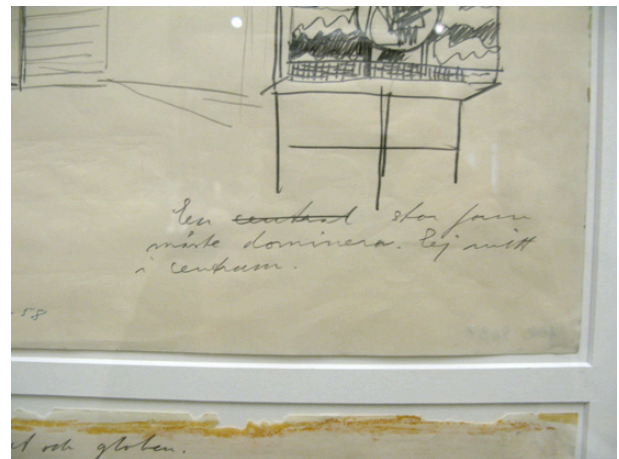 En central stor form
måste dominera. Ej mitt
i centrum.
58
och globen.